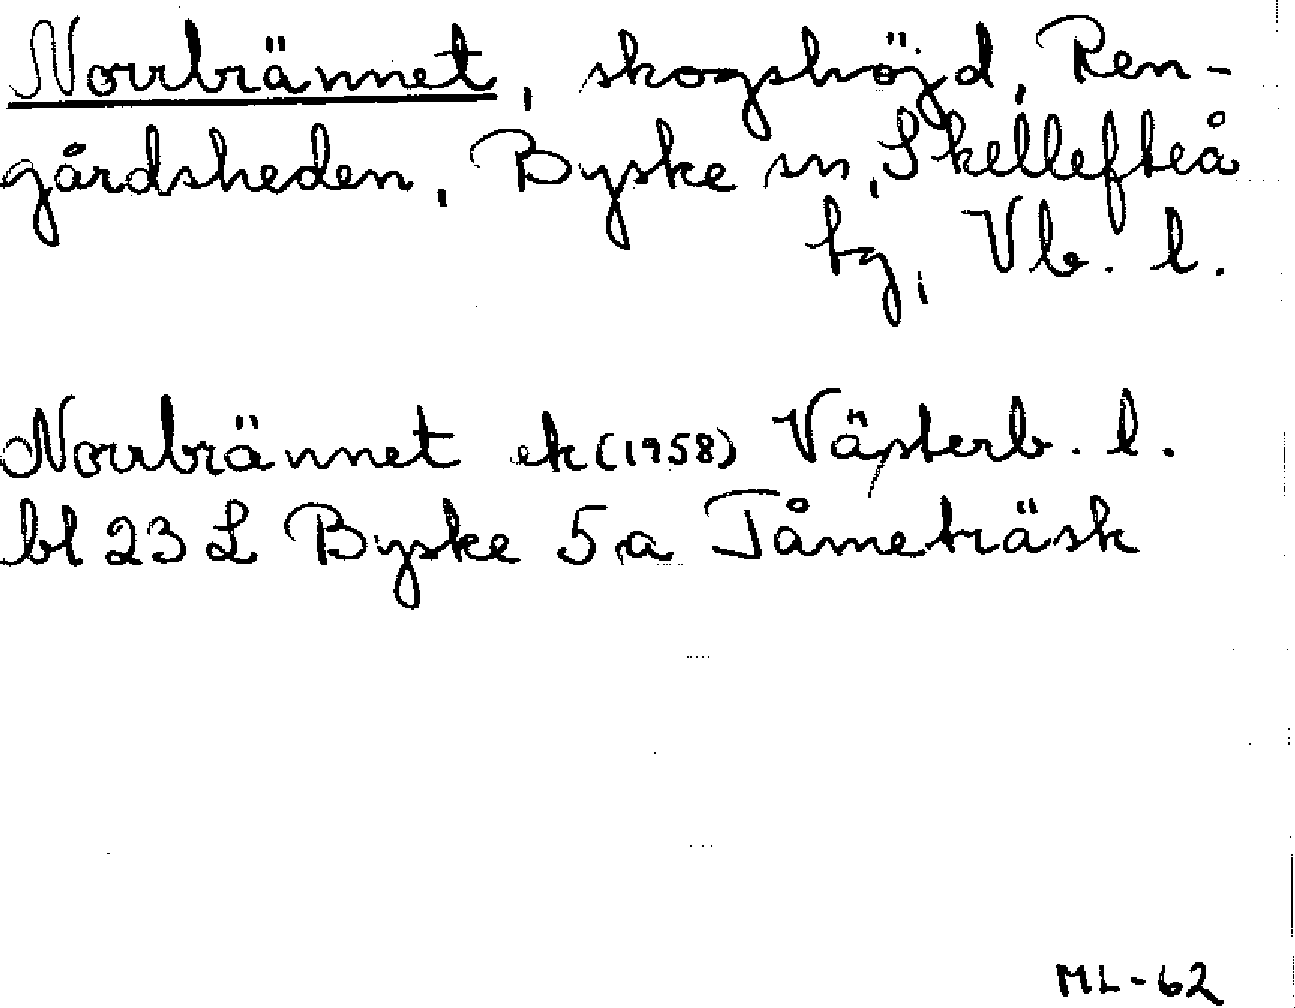 Norrbrännet, skogshöjd, Ren-
gårdsheden, Byske sn, Skellefteå
tg, Vb. l.
Norrbrännet ek (1958) Västerb. l.
bl 23 L Byske 5 a Tåmeträsk
ML-62